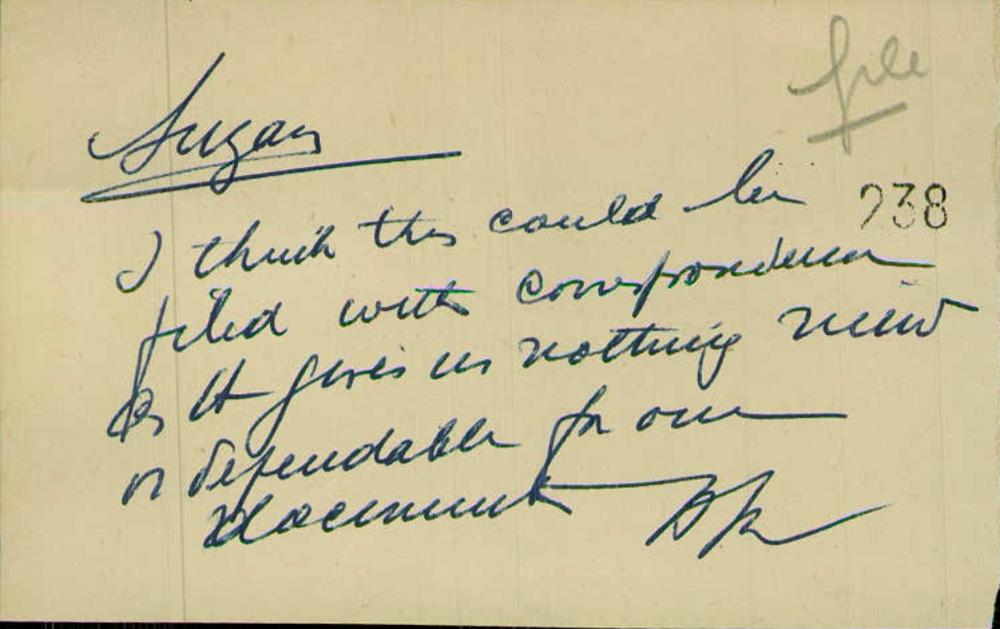 file
Sugar
I think this could be
238
filed with correspondence
as it gives us nothing new
or dependable for our
document